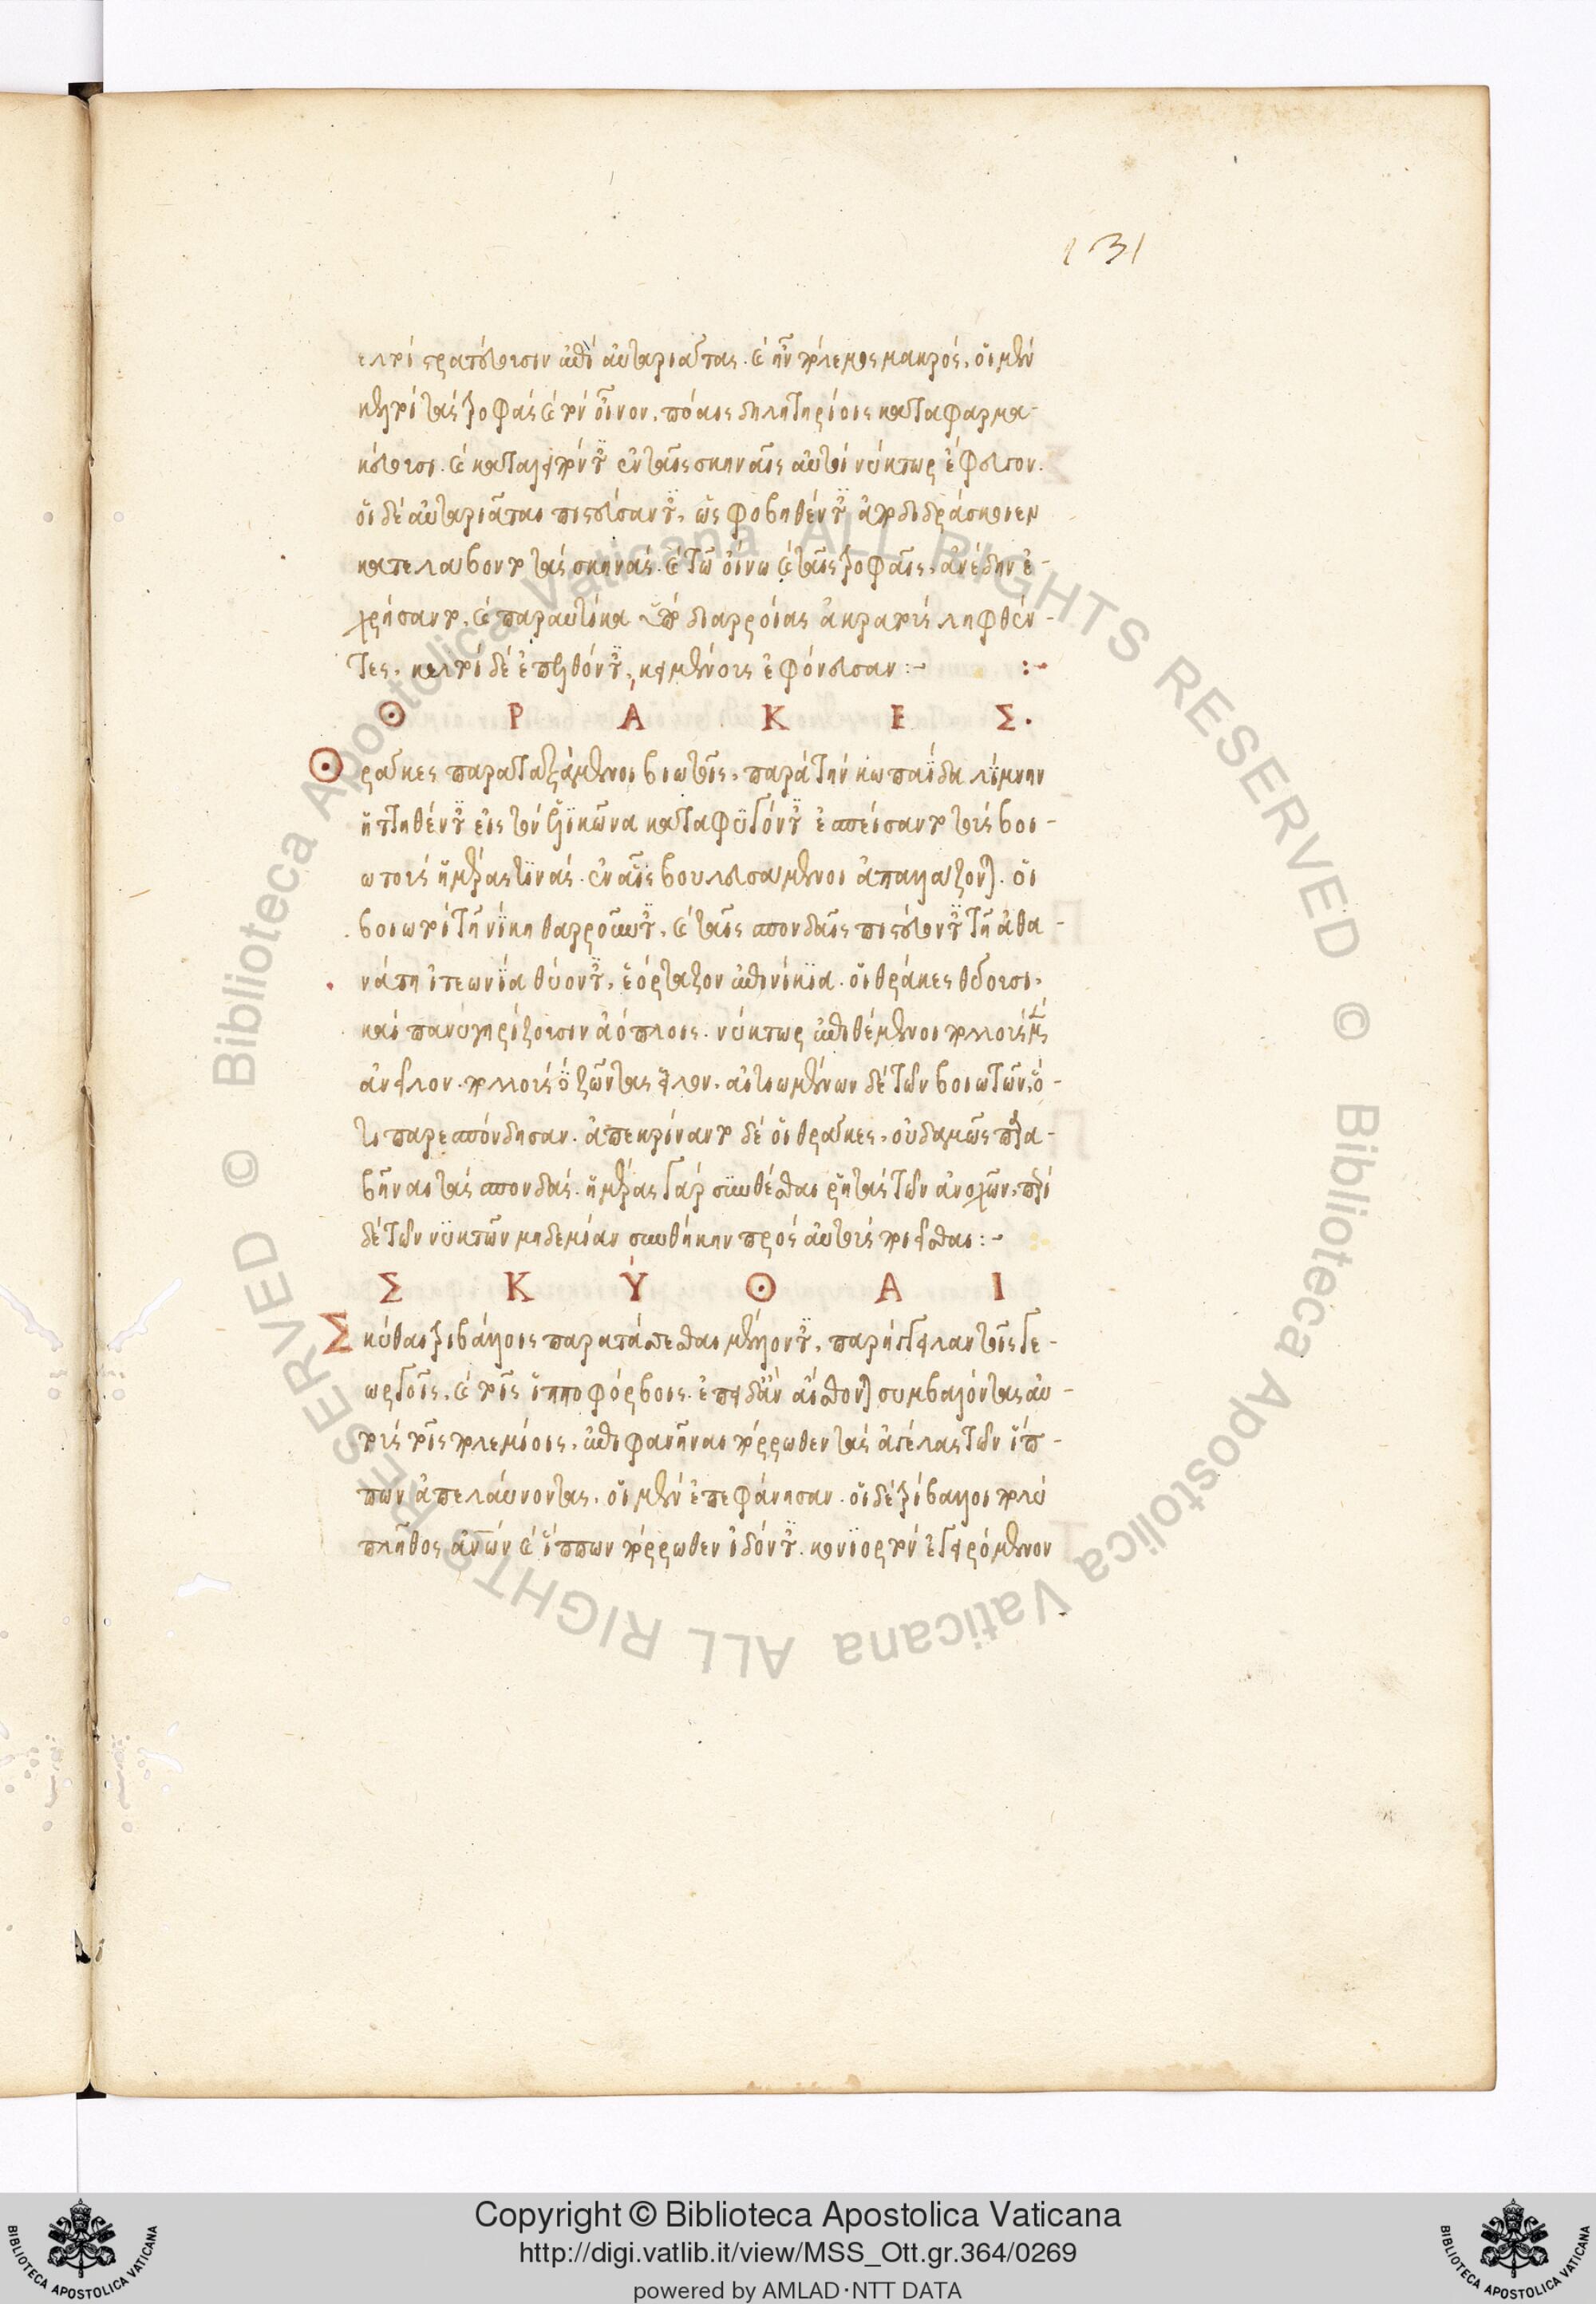 131
ελτοὶ στρατεύουσιν ἐπὶ αὐταριάτας. καὶ ἦν πόλεμος μακρός. οἱ μὲν
κελτοὶ τὰς τροφὰς καὶ τὸν οἶνον. πόαις δηλητηρίοις καταφαρμα-
κεύουσι. καὶ καταλιπόντες ἐν ταῖς σκηναῖς αὐτοὶ νύκτωρ ἔφευγον.
οἱ δὲ αὐταριᾶται πιστεύσαντες, ὡς φοβηθέντες ἀποδιδράσκοιεν
κατελάβοντο τὰς σκηνάς. καὶ τῶ οἴνω καὶ ταῖς τροφαῖς, ἀνέδην ἐ-
χρήσαντο. καὶ παραυτίκα ὑπὸ διαρροίας ἀκρατοῦς ληφθέν-
τες. κελτοὶ δὲ ἐπελθόντες, κειμένους ἐφόνευσαν :-
Θ Ρ Α Κ Ε Σ.
Θρᾶκες παραταξάμενοι βοιωτοῖς, παρὰ τὴν κωπαΐδα λίμνην
ἡττηθέντες εἰς τὸν ἑλικῶνα καταφυγόντες ἐσπείσαντο τοῖς βοι-
ωτοῖς ἡμέρας τινάς. ἐν αἷς βουλευσάμενοι ἀπαλλάξονται. οἱ
βοιωτοὶ τῆ νίκη θαρροῦντες. καὶ ταῖς σπονδαῖς πιστεύοντες τῆ ἀθα-
νάτη ἰτεωνία θύοντες, ἑόρταζον ἐπινίκια. οἱ θρᾶκες θύουσι,
καὶ πανυγηρίζουσιν ἀόπλοις. νύκτωρ ἐπιθέμενοι πολλοὺς μὲν
ἀνεῖλον. πολλοὺς δὲ ζῶντας εἷλον. αἰτιωμένων δὲ τῶν βοιωτῶν, ὅ-
τι παρεσπόνδησαν. ἀπεκρίναντο δὲ οἱ θρᾶκες, οὐδαμῶς παρα-
βῆναι τὰς σπονδάς. ἡμέρας γὰρ συνθέσθαι ῥητὰς τῶν ἀνοχῶν, περὶ
δὲ τῶν νυκτῶν μηδεμίαν συνθήκην πρὸς αὐτοὺς ποιεῖσθαι :-
Σ Κ Ύ Θ Α Ι
Σκύθαι τριβάλλοις παρατάττεσθαι μέλλοντες, παρήγγειλαν τοῖς γε-
ωργοῖς. καὶ τοῖς ἱπποφόρβοις. ἐπειδὰν αἴσθονται συμβαλόντας αὐ-
τοὺς τοῖς πολεμίοις, ἐπιφανῆναι πόρρωθεν τὰς ἀγέλας τῶν ἵπ-
πων ἀπελαύνοντας. οἱ μὲν ἐπεφάνησαν. οἱ δὲ τριβαλλοὶ πολὺ
πλῆθος ἀνθρώπων καὶ ἵππων πόρρωθεν ἰδόντες. κονιορτὸν ἐγειρόμενον
Copyright © Biblioteca Apostolica Vaticana
http://digi.vatlib.it/view/MSS_Ott.gr.364/0269
powered by AMLAD·NTT DATA